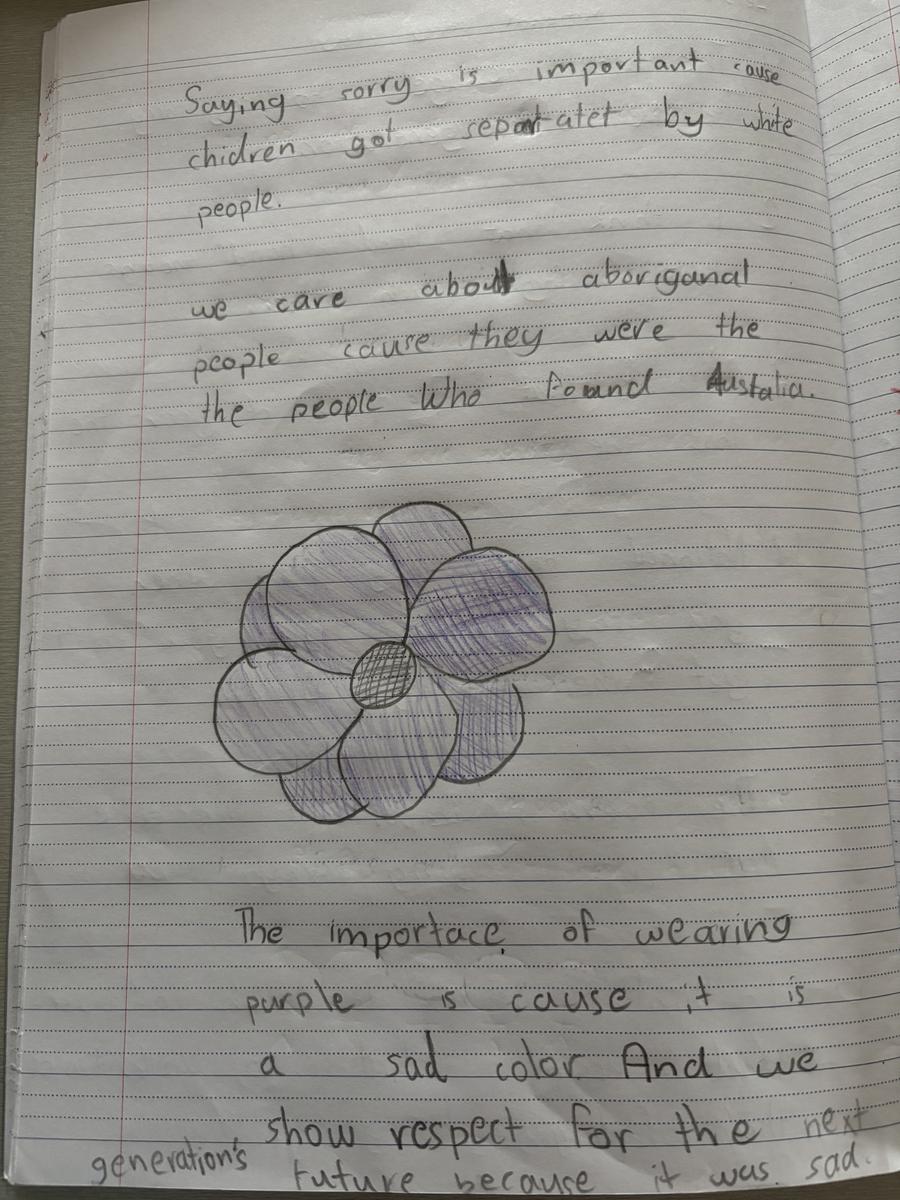 Saying sorry is important cause
chidren got separatet by white
people.
we care about aboriganal
people cause they were the
the people who found Austalia.
The importace of wearing
purple is cause it is
a sad color And we
show respect for the next
generation's future because it was sad.